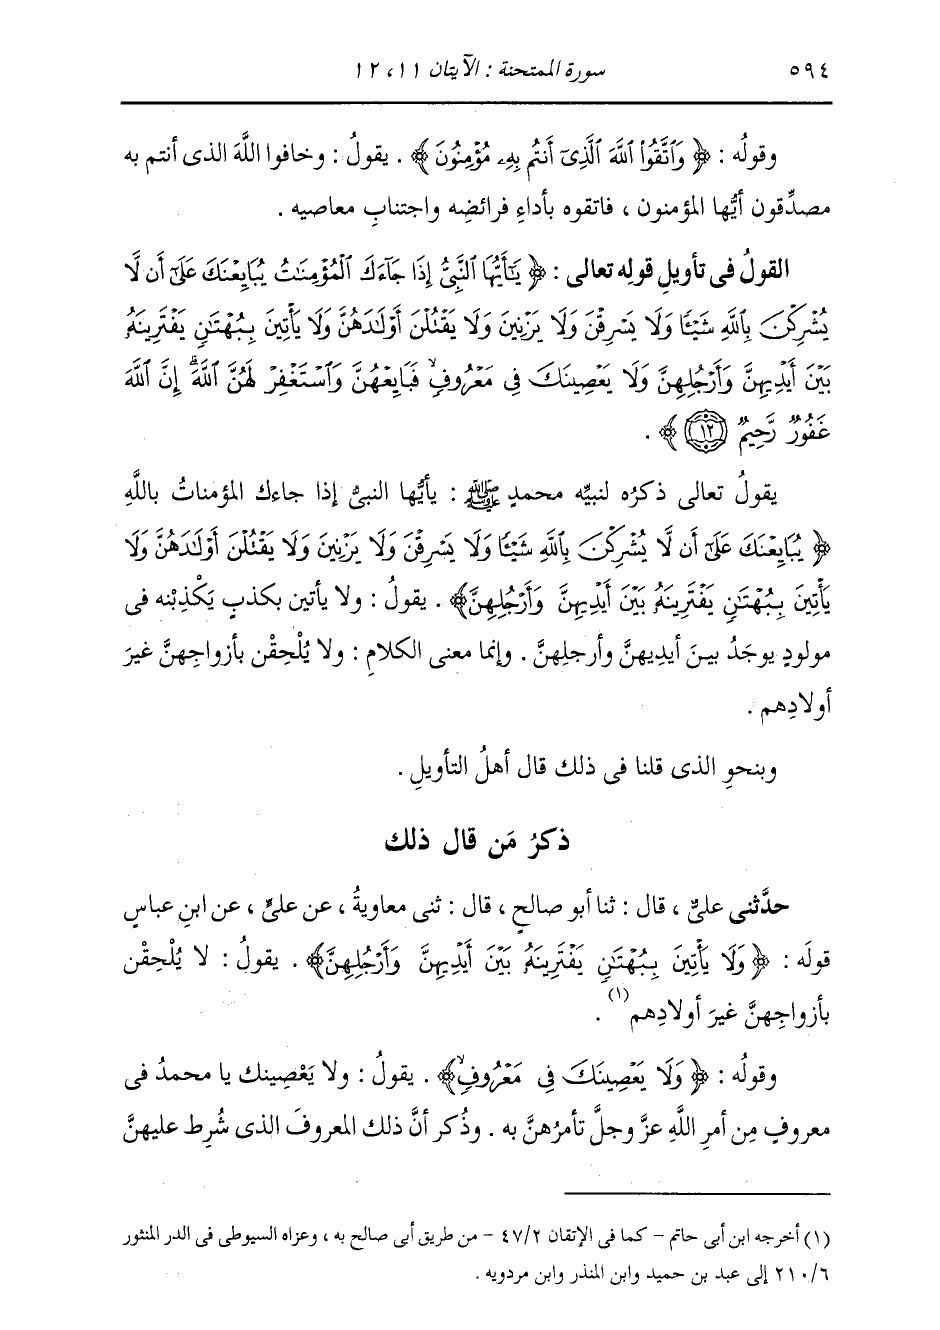 ٥٩٤ سورة الممتحنة : الآيتان ١١ ، ١٢
وقولُه : ﴿ وَاتَّقُوا اللَّهَ الَّذِي أَنتُم بِهِ مُؤْمِنُونَ ﴾ . يقولُ : وخافوا اللَّهَ الذى أنتم به
مصدِّقون أيُّها المؤمنون ، فاتقوه بأداءِ فرائضِه واجتنابِ معاصيه .
القولُ فى تأويلِ قولِه تعالى : ﴿ يَٰٓأَيُّهَا النَّبِيُّ إِذَا جَآءَكَ الْمُؤْمِنَٰتُ يُبَايِعْنَكَ عَلَىٰٓ أَن لَّا
يُشْرِكْنَ بِاللَّهِ شَيْـًٔا وَلَا يَسْرِقْنَ وَلَا يَزْنِينَ وَلَا يَقْتُلْنَ أَوْلَٰدَهُنَّ وَلَا يَأْتِينَ بِبُهْتَٰنٍ يَفْتَرِينَهُۥ
بَيْنَ أَيْدِيهِنَّ وَأَرْجُلِهِنَّ وَلَا يَعْصِينَكَ فِى مَعْرُوفٍ ۙ فَبَايِعْهُنَّ وَاسْتَغْفِرْ لَهُنَّ اللَّهَ ۖ إِنَّ اللَّهَ
غَفُورٌ رَّحِيمٌ ١٢ ﴾ .
يقولُ تعالى ذكرُه لنبيِّه محمدٍ ﷺ : يأيُّها النبىُّ إذا جاءك المؤمناتُ باللَّهِ
﴿ يُبَايِعْنَكَ عَلَىٰٓ أَن لَّا يُشْرِكْنَ بِاللَّهِ شَيْـًٔا وَلَا يَسْرِقْنَ وَلَا يَزْنِينَ وَلَا يَقْتُلْنَ أَوْلَٰدَهُنَّ وَلَا
يَأْتِينَ بِبُهْتَٰنٍ يَفْتَرِينَهُۥ بَيْنَ أَيْدِيهِنَّ وَأَرْجُلِهِنَّ ﴾ . يقولُ : ولا يأتين بكذبٍ يَكْذِبْنه فى
مولودٍ يوجَدُ بينَ أيديهنَّ وأرجلِهنَّ . وإنما معنى الكلامِ : ولا يُلْحِقْن بأزواجِهنَّ غيرَ
أولادِهم .
وبنحوِ الذى قلنا فى ذلك قال أهلُ التأويلِ .
ذكرُ مَن قال ذلك
حدَّثنى علىٌّ ، قال : ثنا أبو صالحٍ ، قال : ثنى معاويةُ ، عن علىٍّ ، عن ابنِ عباسٍ
قولَه : ﴿ وَلَا يَأْتِينَ بِبُهْتَٰنٍ يَفْتَرِينَهُۥ بَيْنَ أَيْدِيهِنَّ وَأَرْجُلِهِنَّ ﴾ . يقولُ : لا يُلْحِقْن
بأزواجِهنَّ غيرَ أولادِهم (١) .
وقولُه : ﴿ وَلَا يَعْصِينَكَ فِى مَعْرُوفٍ ۙ ﴾ . يقولُ : ولا يَعْصِينك يا محمدُ فى
معروفٍ مِن أمرِ اللَّهِ عزَّ وجلَّ تأمرُهنَّ به . وذُكر أنَّ ذلك المعروفَ الذى شُرِط عليهنَّ
(١) أخرجه ابن أبى حاتم - كما فى الإتقان ٤٧/٢ - من طريق أبى صالح به ، وعزاه السيوطى فى الدر المنثور
٢١٠/٦ إلى عبد بن حميد وابن المنذر وابن مردويه .